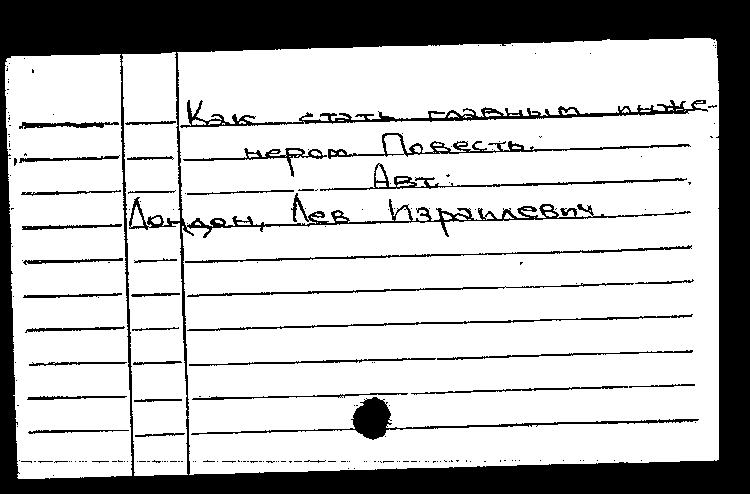 Как стать главным инже-
нером Повесть.
Авт.:
Лондон, Лев Израилевич.